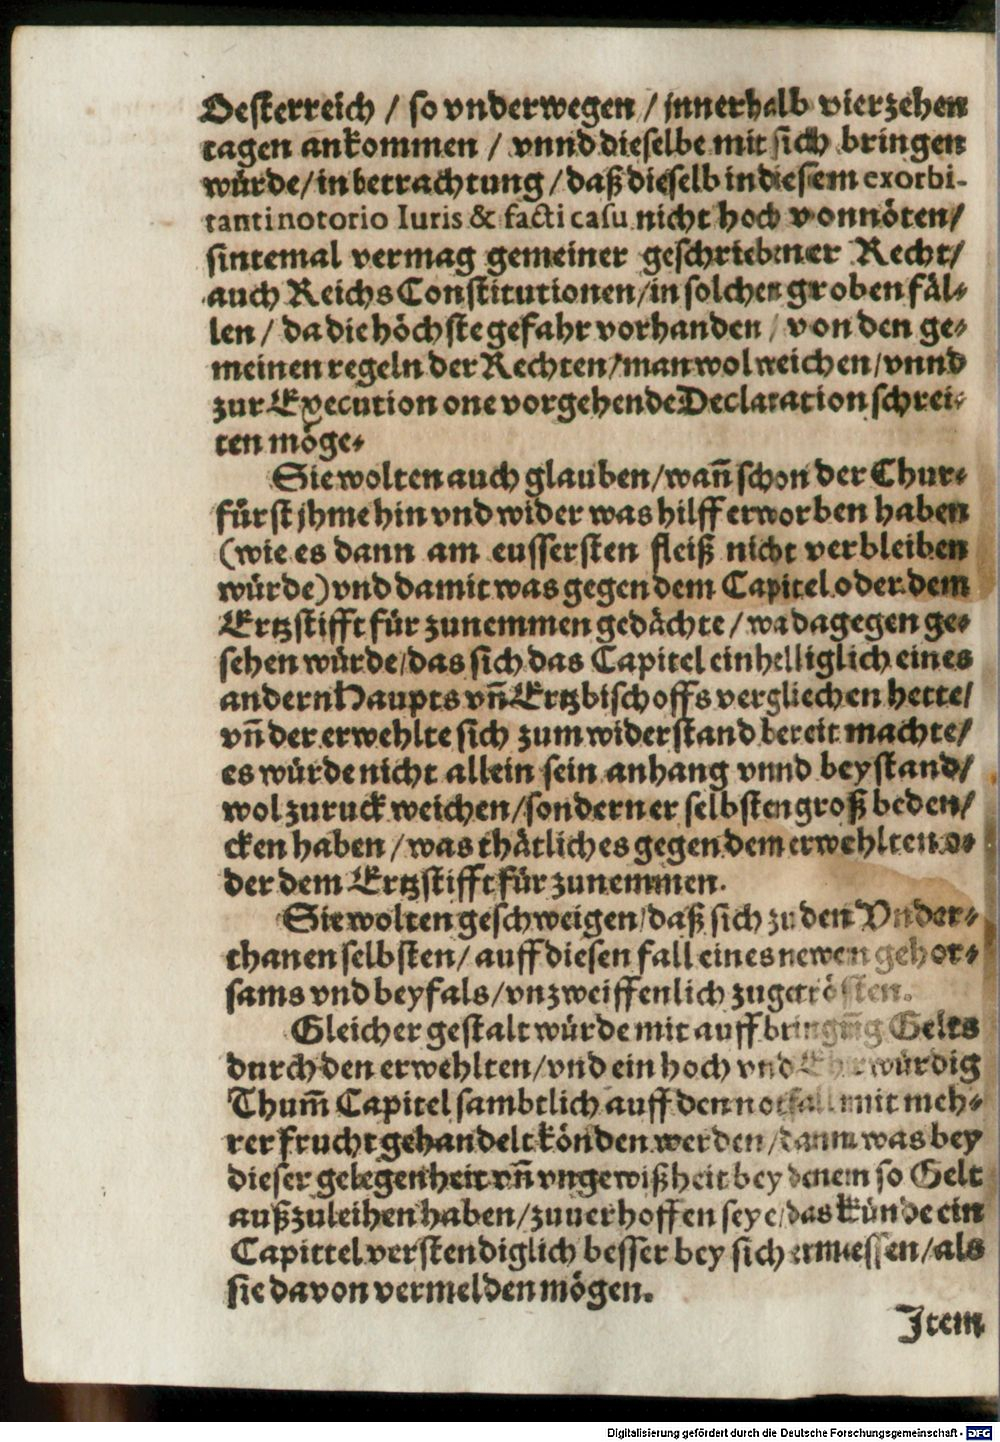 Oesterreich / so vnderwegen / jnnerhalb vierzehen
tagen ankommen / vnnd dieselbe mit sich bringen
würde / in betrachtung / daß dieselb in diesem exorbi-
tanti notorio Iuris & facti casu nicht hoch vonnöten /
sintemal vermag gemeiner geschriebener Recht /
auch Reichs Constitutionen / in solchen groben fäl-
len / da die höchste gefahr vorhanden / von den ge-
meinen regeln der Rechten / man wol weichen / vnnd
zur Execution one vorgehende Declaration schrei-
ten möge.
Sie wolten auch glauben / wañ schon der Chur-
fürst jhme hin vnd wider was hilff erworben haben
(wie es dann am eussersten fleiß nicht verbleiben
würde) vnd damit was gegen dem Capitel oder dem
Ertzstifft fürzunemmen gedächte / wa dagegen ge-
sehen würde / das sich das Capitel einhelliglich eines
andern Haupts vñ Ertzbischoffs vergliechen hette /
vñ der erwehlte sich zum widerstand bereit machte /
es würde nicht allein sein anhang vnnd beystand /
wol zuruck weichen / sondern er selbsten groß beden /
cken haben / was thätliches gegen dem erwehlten o-
der dem Ertzstifft fürzunemmen.
Sie wolten geschweigen / daß sich zu den Vnder-
thanen selbsten / auff diesen fall eines newen gehor-
sams vnd beyfals / vnzweiffenlich zugetrösten.
Gleicher gestalt würde mit auffbringũg Gelts
durch den erwehlten / vnd ein hoch vnd Ehrwürdig
Thum̃ Capitel sambtlich auff den notfall mit meh-
rer frucht gehandelt könden werden / dann was bey
dieser gelegenheit vñ vngewißheit bey denem so Gelt
außzuleihen haben / zuuerhoffen seye / das künde ein
Capittel verstendiglich besser bey sich ermessen / als
sie davon vermelden mögen.
Item
Digitalisierung gefördert durch die Deutsche Forschungsgemeinschaft - DFG